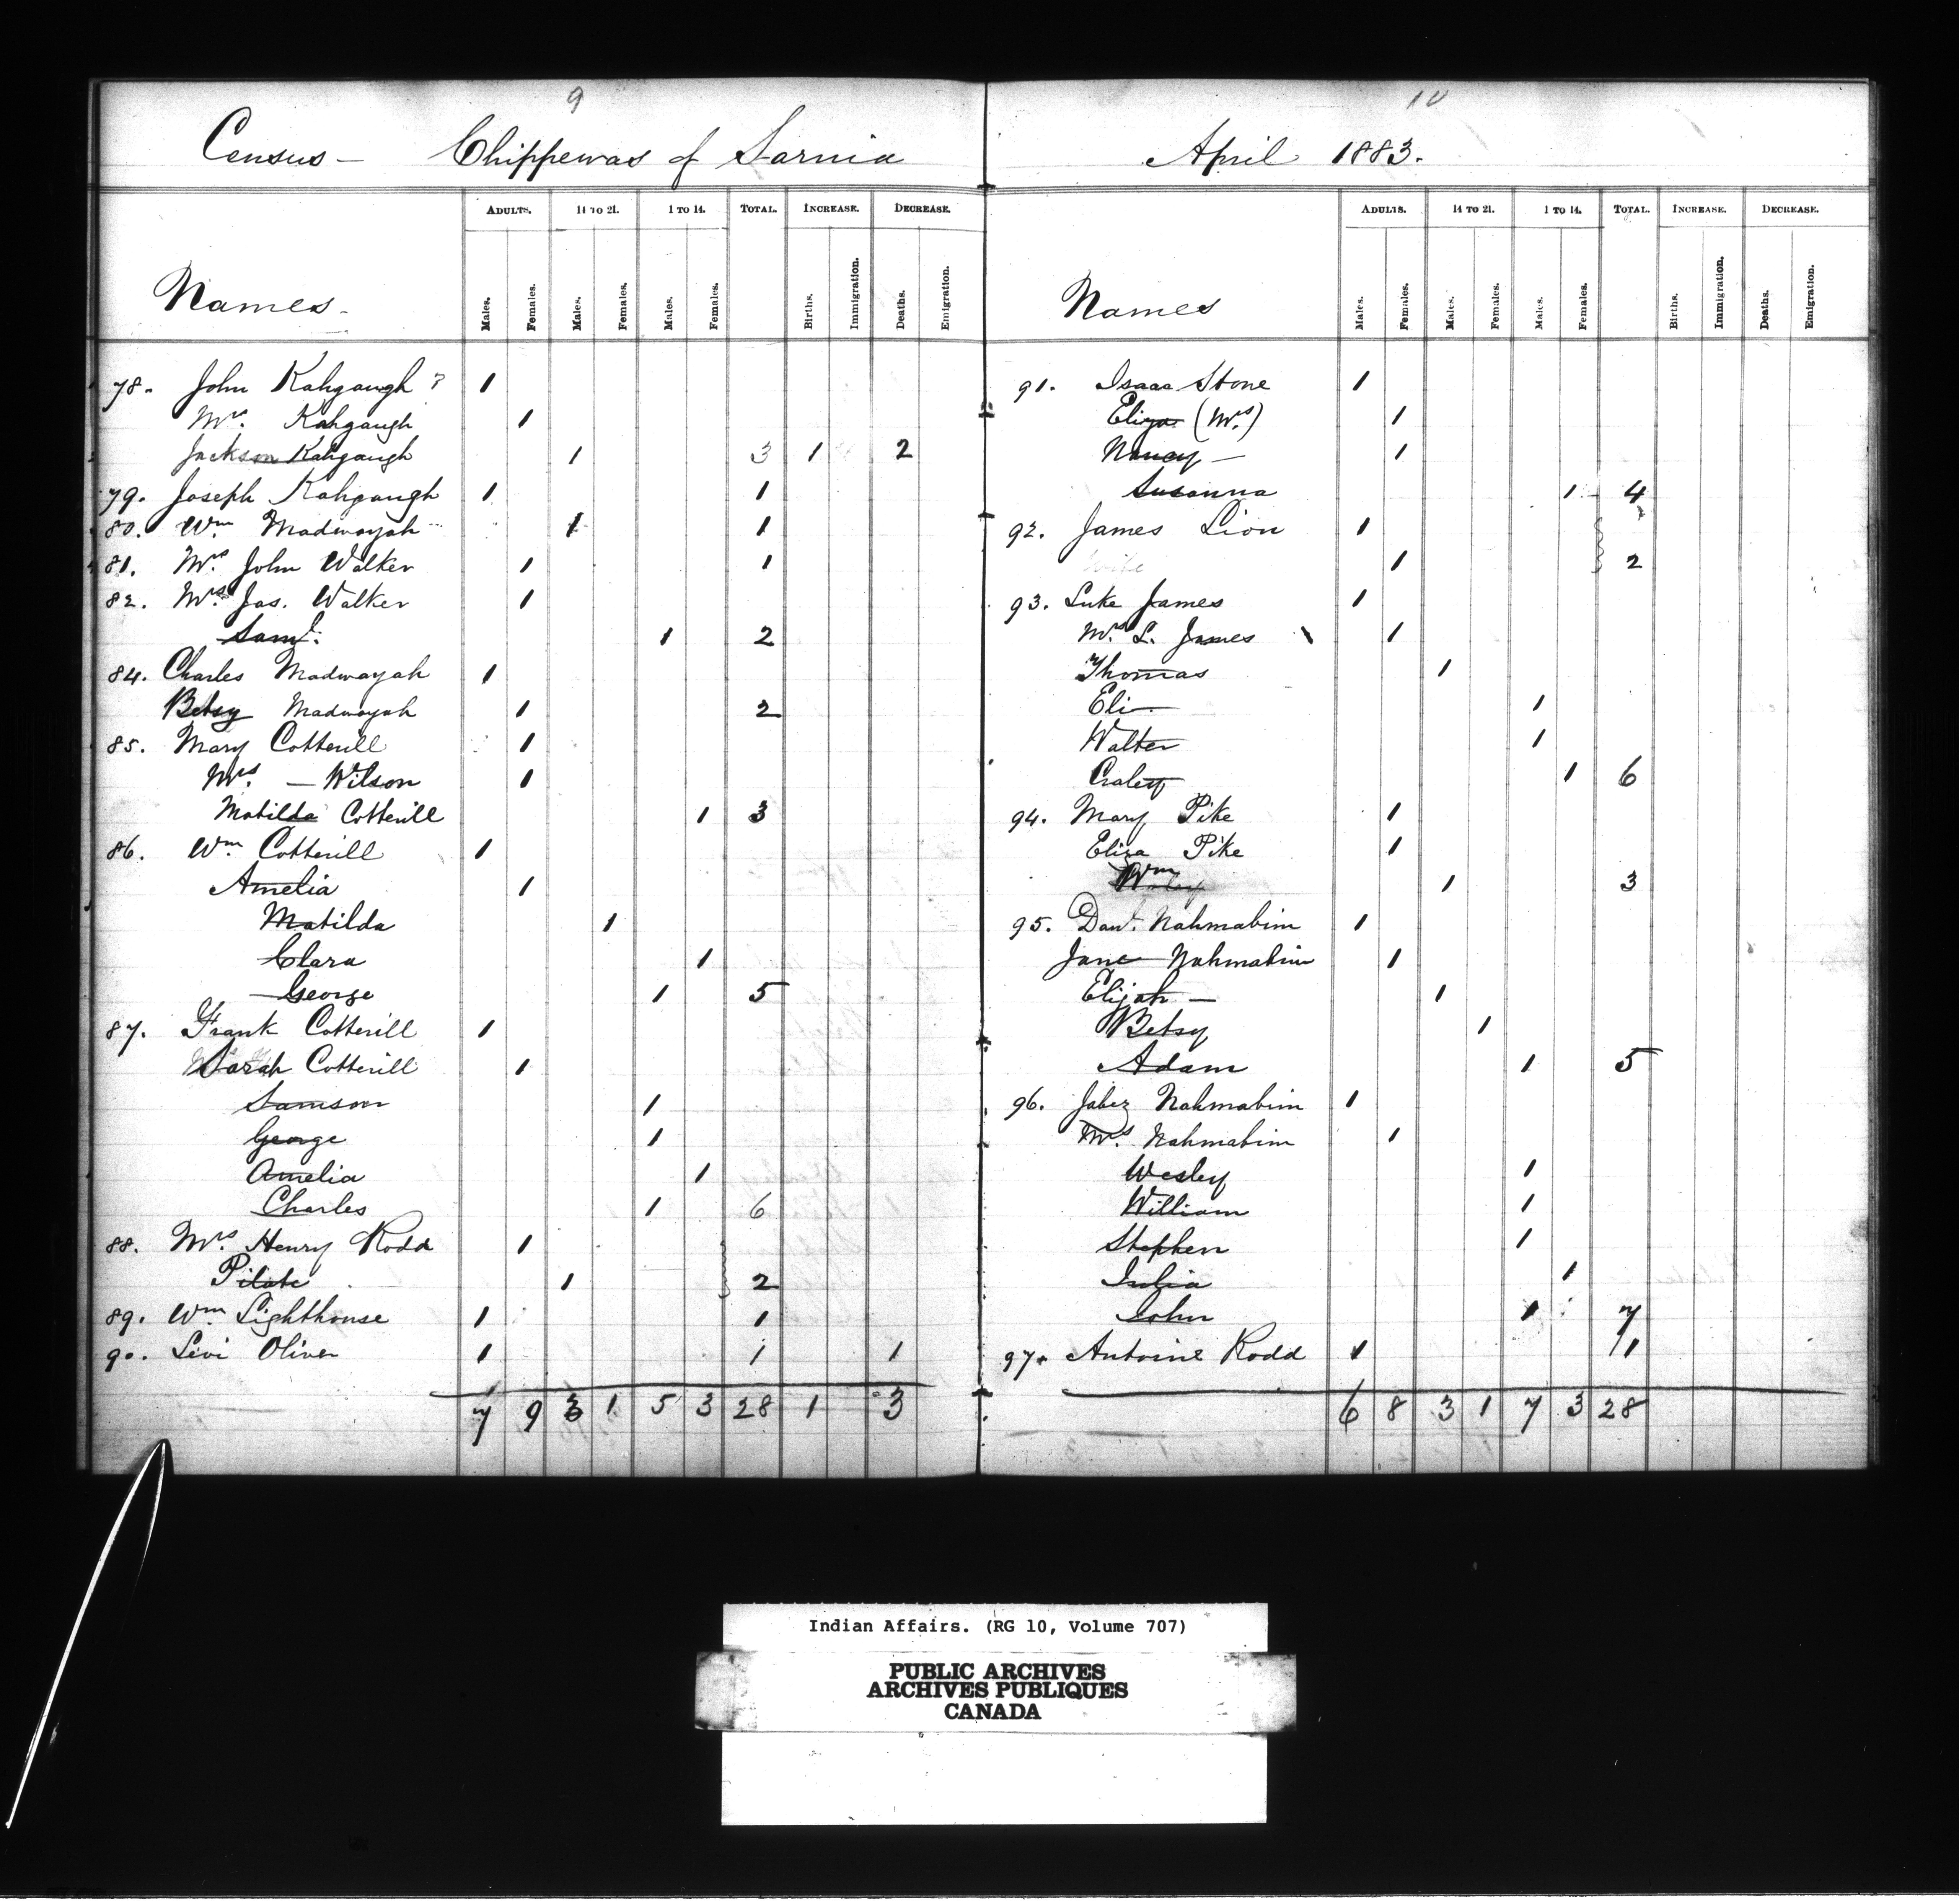 9
Census - Chippewas of Sarnia
ADULTS. 14 TO 21. 1 TO 14. TOTAL. INCREASE. DECREASE.
Names - Males. Females. Males. Females. Males. Females. Births. Immigration. Deaths. Emigration.
78. John Kahgaugh ? 1
Mrs. Kahgaugh 1
Jackson Kahgaugh 1 3 1 2
79. Joseph Kahgaugh 1 1
80. Wm Madwayah 1 1
81. Mrs. John Walker 1 1
82. Mrs. Jas. Walker 1
Saml. 1 2
84. Charles Madwayah 1
Betsy Madwayah 1 2
85. Mary Cotterill 1
Mrs. - Wilson 1
Matilda Cotterill 1 3
86. Wm. Cotterill 1
Amelia 1
Matilda 1
Clara 1
George 1 5
87. Frank Cotterill 1
Sarah Cotterill 1
Samson 1
George 1
Amelia 1
Charles 1 6
88. Mrs. Henry Rodd 1
Pilate 1 2
89. Wm Lighthouse 1 1
90. Levi Oliver 1 1 1
7 9 3 1 5 3 28 1 3
10
April 1883.
ADULTS. 14 TO 21. 1 TO 14. TOTAL. INCREASE. DECREASE.
Names Males. Females. Males. Females. Males. Females. Births. Immigration. Deaths. Emigration.
91. Isaac Stone 1
Eliza (Mrs.) 1
Nancy - 1
Susanna 1 4
92. James Lion 1
Wife 1 2
93. Luke James 1
Mrs. L. James 1
Thomas 1
Eli 1
Walter 1
1 6
94. Mary Pike 1
Eliza Pike 1
Wm 1 3
95. Davd. Nahmabim 1
Jane Nahmabim 1
Elijah - 1
Betsy 1
Adam 1 5
96. Jabez Nahmabim 1
Mrs. Nahmabim 1
Wesley 1
William 1
Stephen 1
Julia 1
John 1 7
97. Antoine Rodd 1 1
6 8 3 1 7 3 28
Indian Affairs. (RG 10, Volume 707)
PUBLIC ARCHIVES
ARCHIVES PUBLIQUES
CANADA